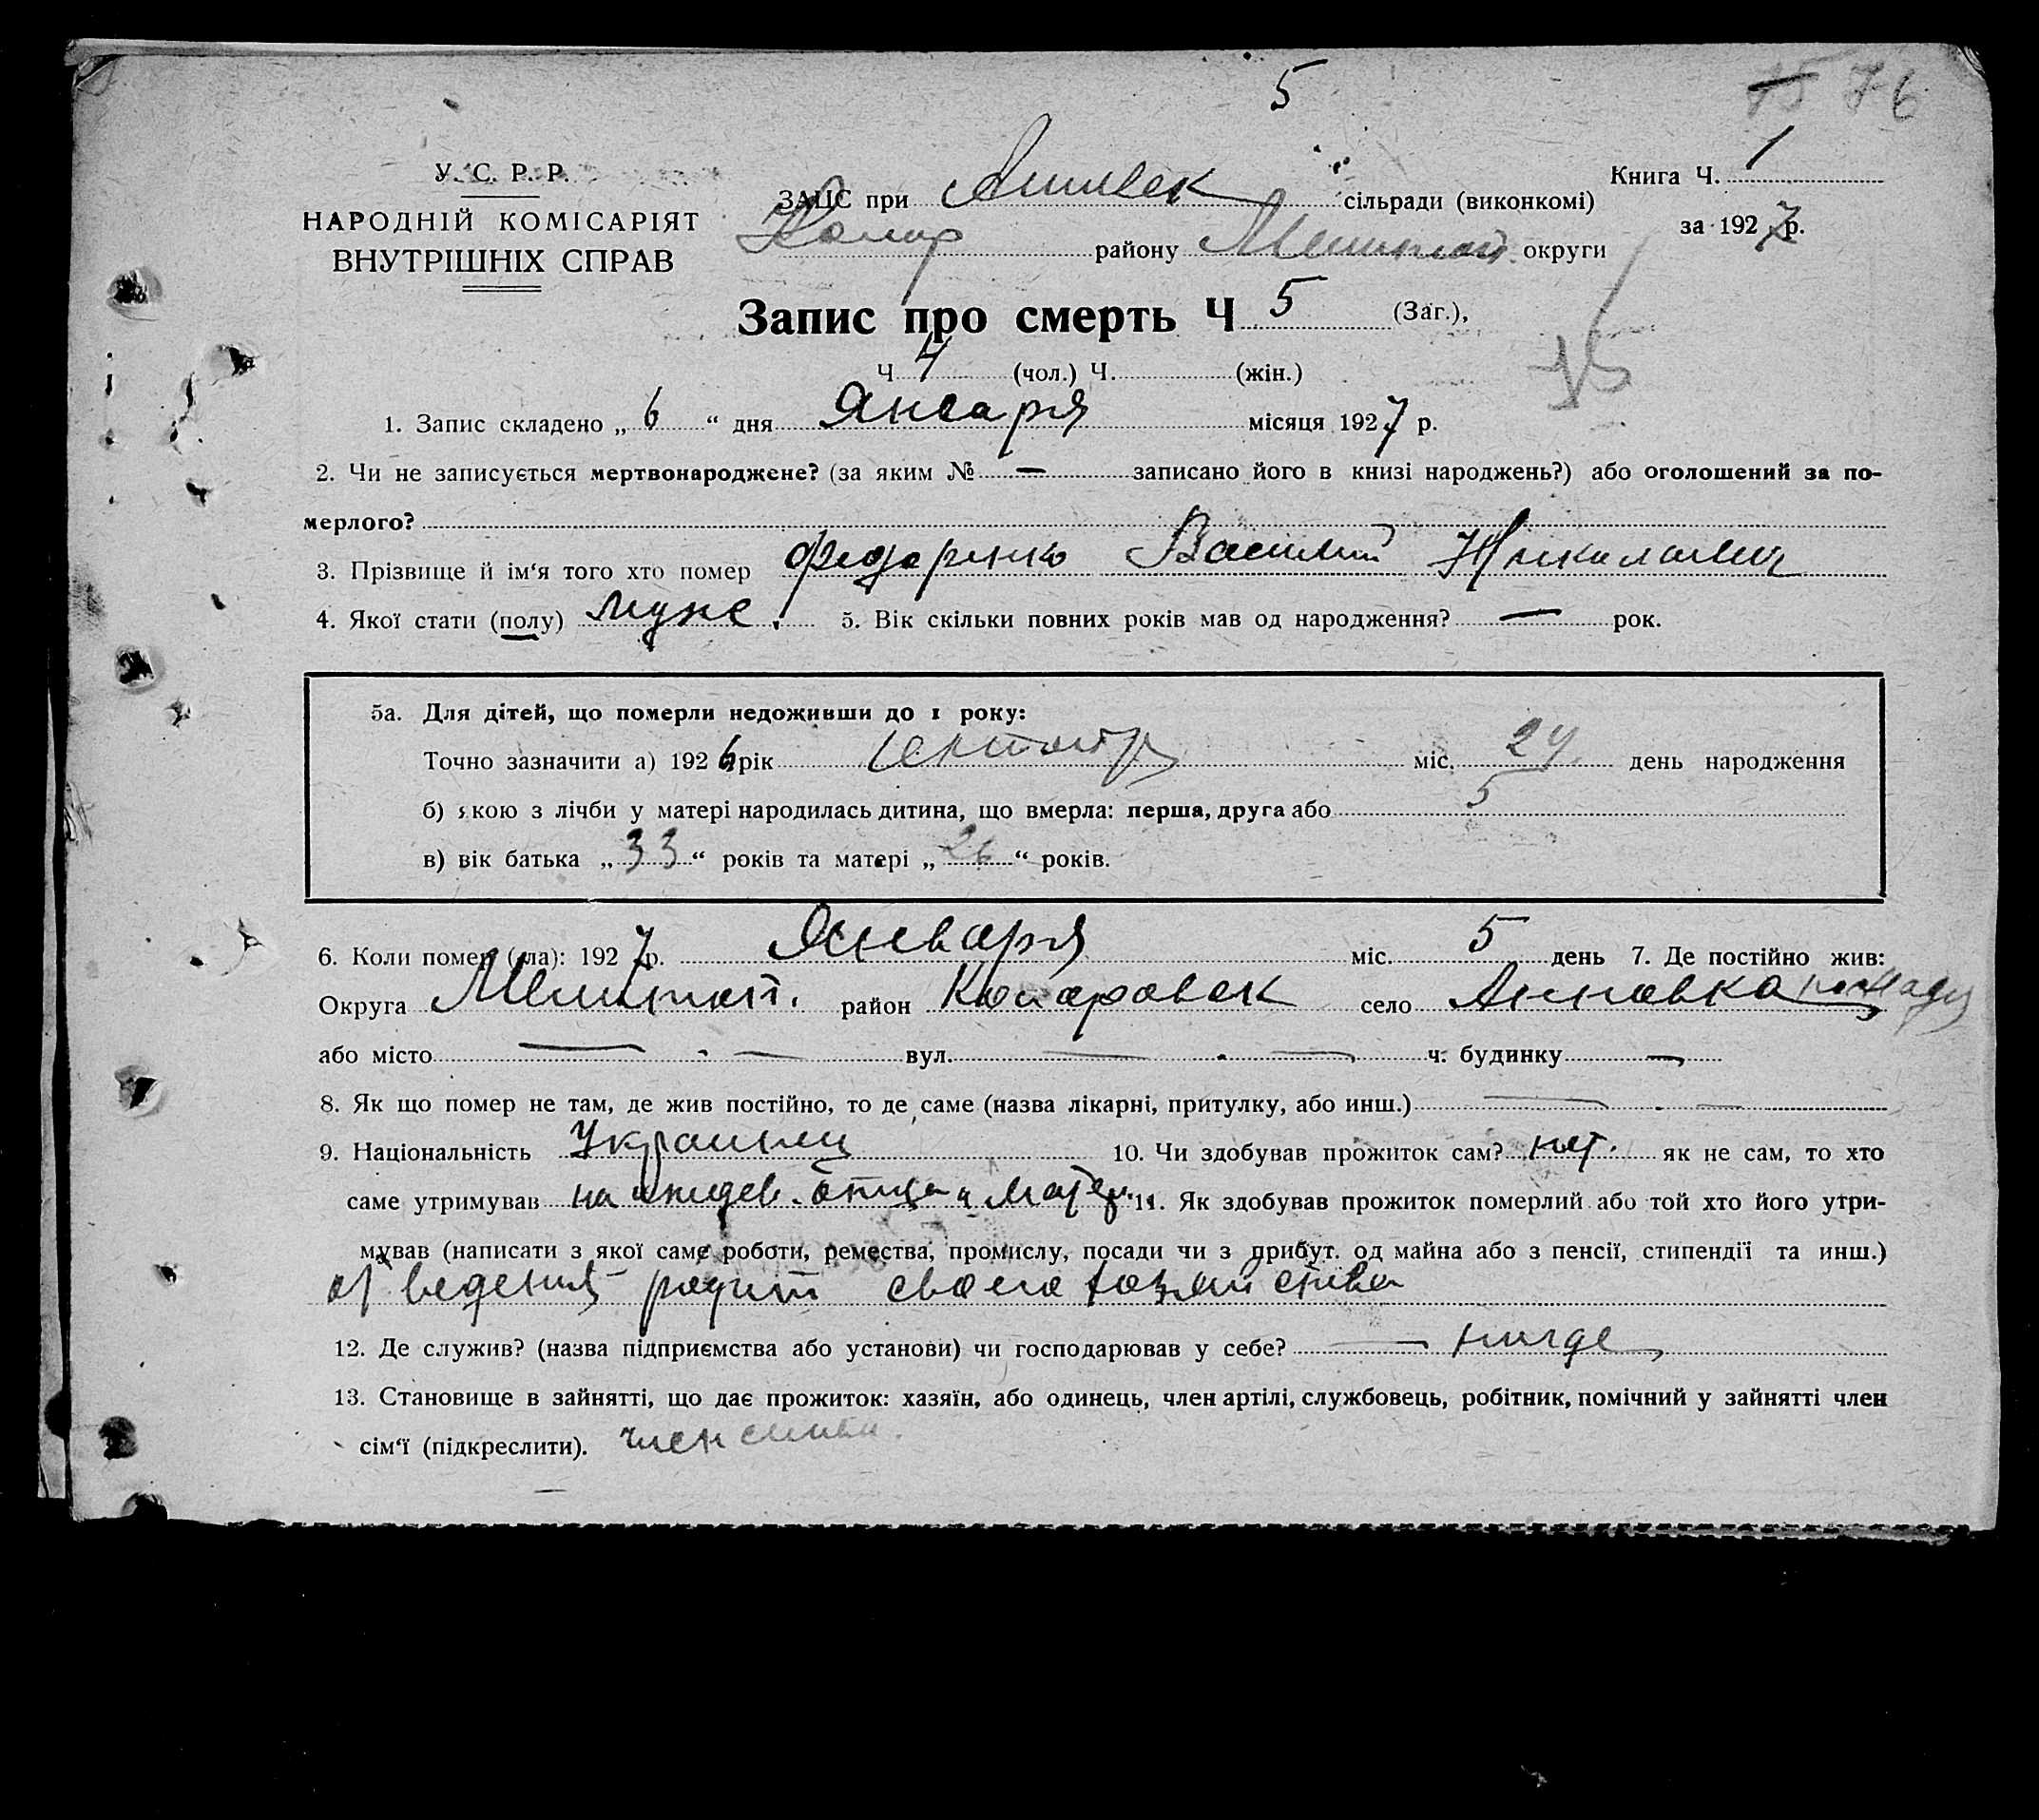 5
75 76
У. С. Р. Р.
НАРОДНІЙ КОМІСАРІЯТ
ВНУТРІШНІХ СПРАВ
ЗАГС при сільради (виконкомі)
Комар району Мелитоп. округи
Книга Ч. 1
за 1927 р.
Запис про смерть Ч 5 (Заг.),
Ч 4 (чол.) Ч. (жін.)
75
1. Запис складено „ 6 “ дня Января місяця 1927 р.
2. Чи не записується мертвонароджене? (за яким № — записано його в книзі народжень?) або оголошений за по-
мерлого?
3. Прізвище й ім‘я того хто помер Федаренко Василий Никалаевич
4. Якої стати (полу) муже. 5. Вік скільки повних років мав од народження? — рок.
5а. Для дітей, що померли недоживши до 1 року:
Точно зазначити а) 1926 рік Сентябр міс. 24 день народження
б) якою з лічби у матері народилась дитина, що вмерла: перша, друга або 5
в) вік батька „ 33 “ років та матері „ 26 “ років.
6. Коли помер (ла): 1927 р. Января міс. 5 день 7. Де постійно жив:
Округа Мелитоп. район село Анновка
або місто — . — вул. — . — ч. будинку —
8. Як що помер не там, де жив постійно, то де саме (назва лікарні, притулку, або инш.) — . —
9. Національність Украинец 10. Чи здобував прожиток сам? нет. як не сам, то хто
саме утримував на иждев. отца и матери 11. Як здобував прожиток померлий або той хто його утри-
мував (написати з якої саме роботи, ремества, промислу, посади чи з прибут. од майна або з пенсії, стипендії та инш.)
от ведения родит своего хозяйства
12. Де служив? (назва підприємства або установи) чи господарював у себе? — нигде
13. Становище в зайнятті, що дає прожиток: хазяїн, або одинець, член артілі, службовець, робітник, помічний у зайнятті член
сім‘ї (підкреслити). член семьи.